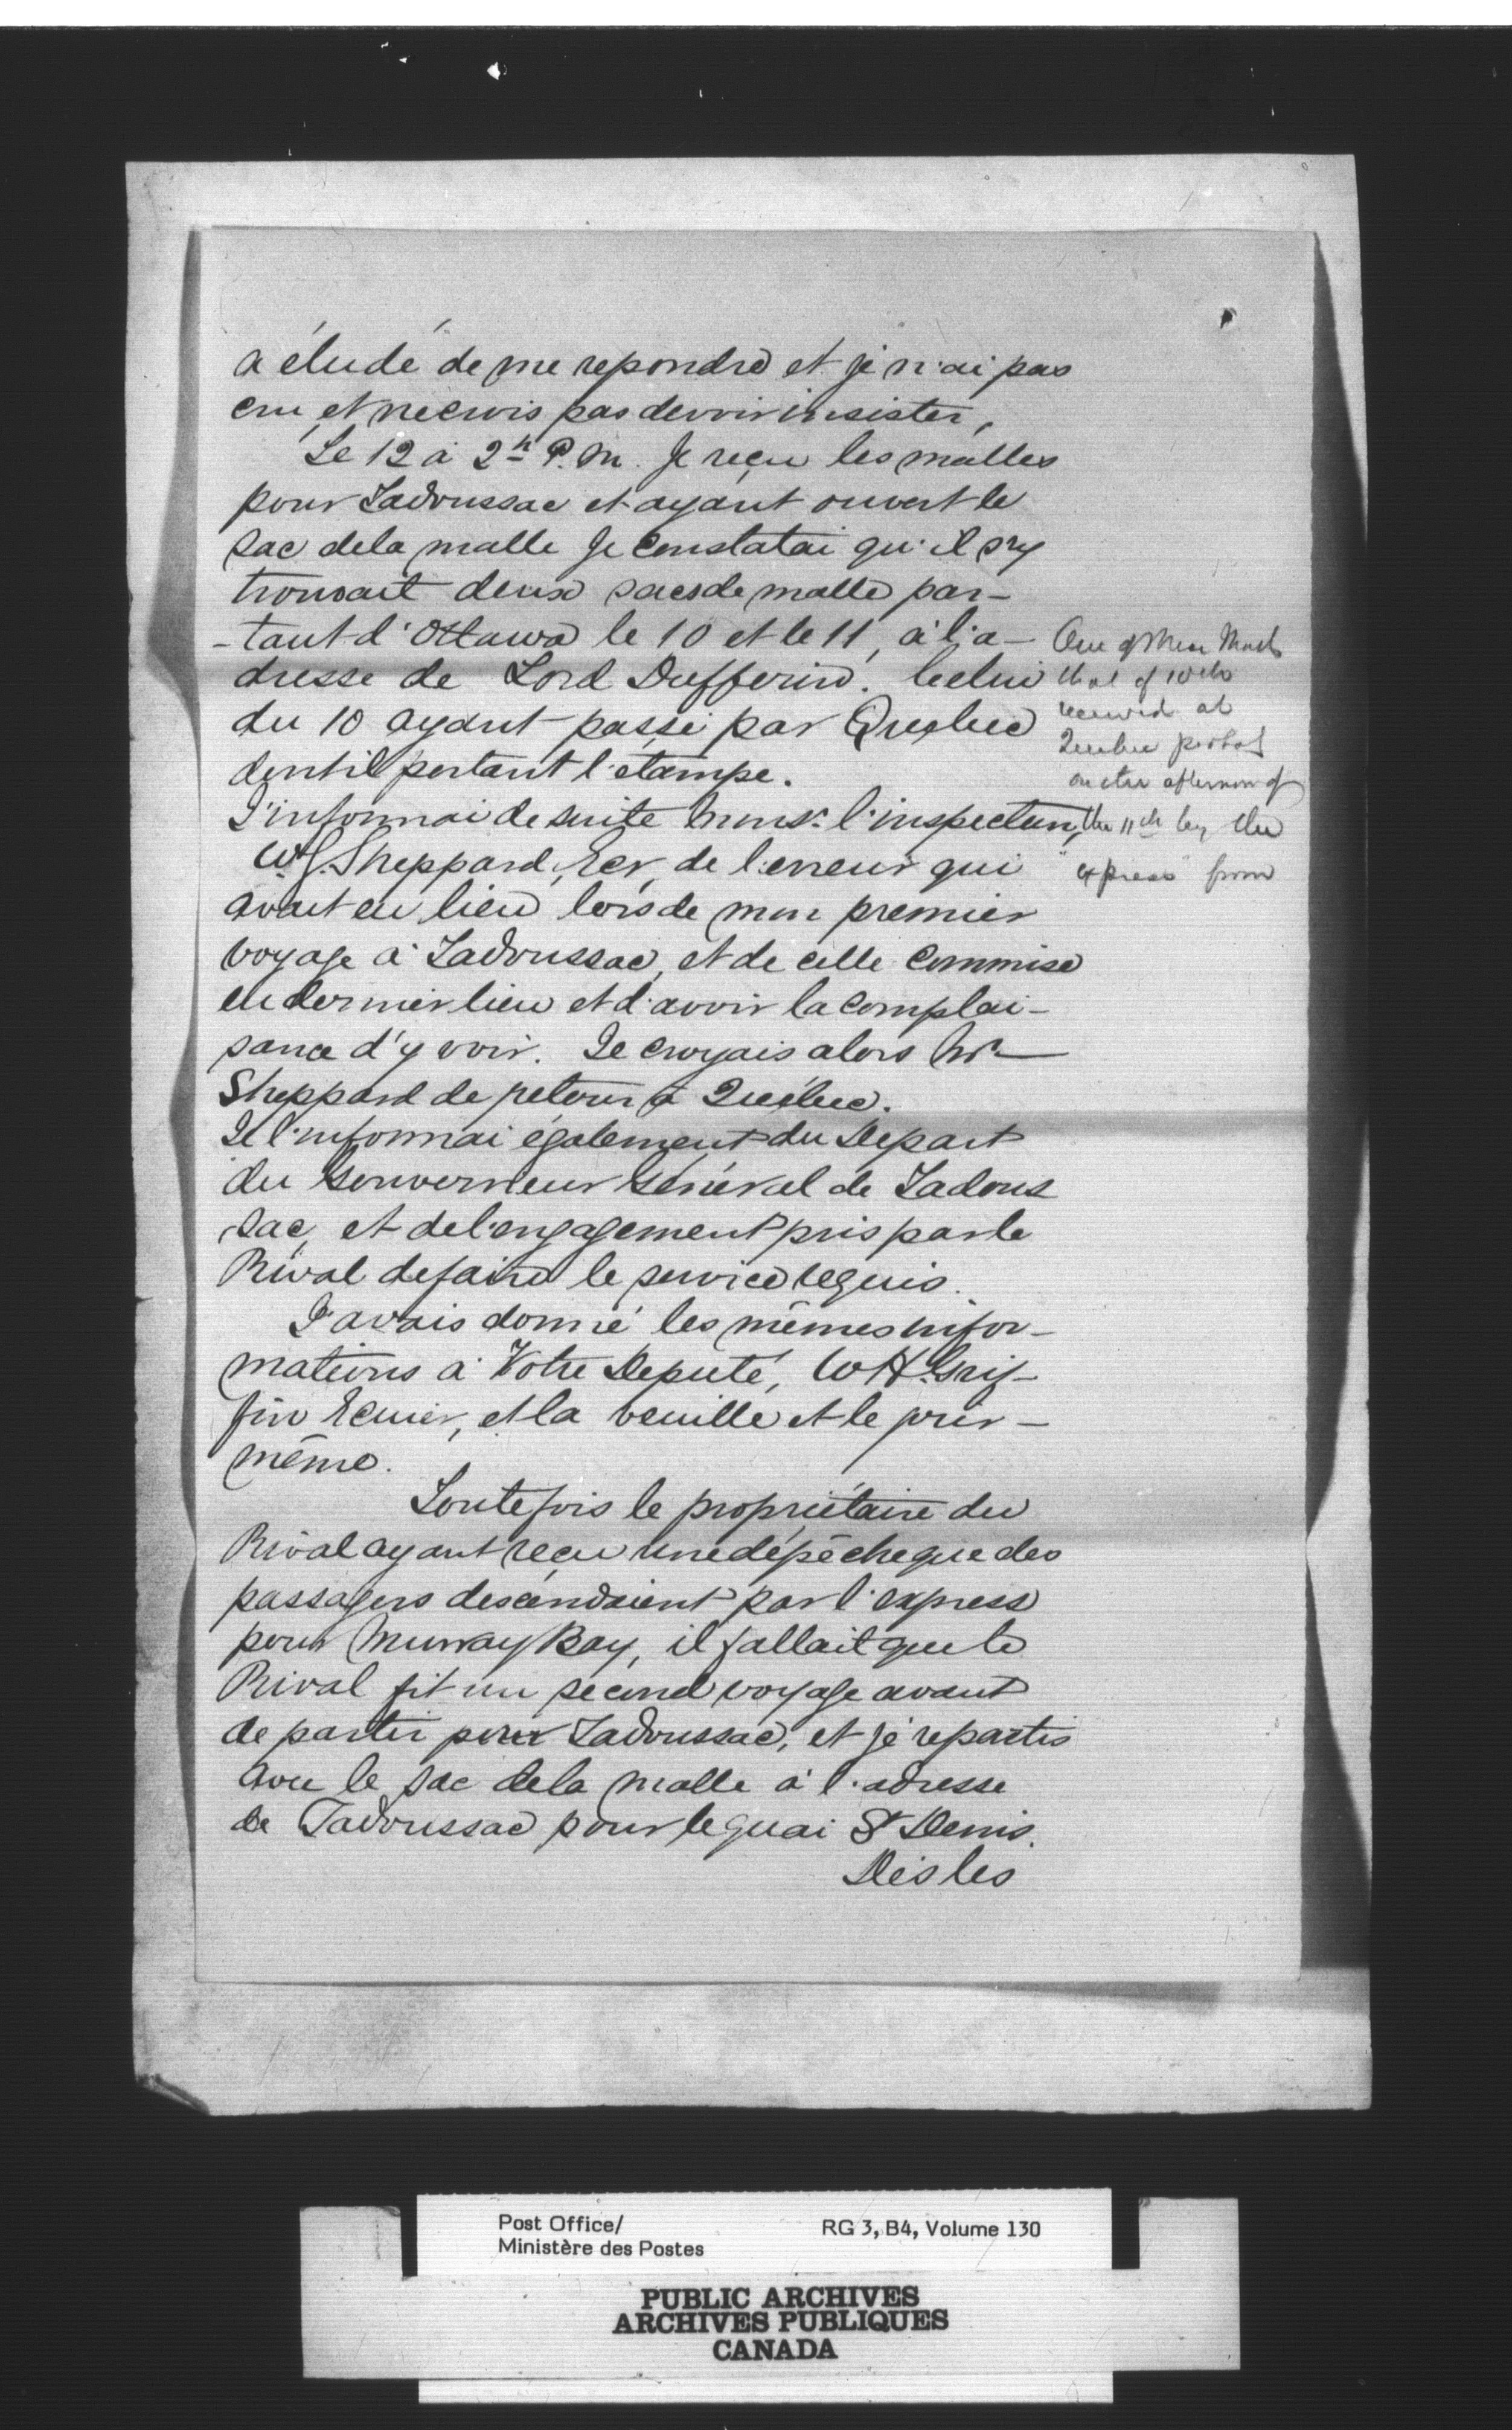 a éludé de me repondre et je n'ai pas
cru et ne crois pas devoir insister,
Le 12 à 2h P.M. Je reçu les malles
pour Tadoussac et ayant ouvert le
sac de la malle Je constatai qu'il s'y
trouvait deux sacs de malle par-
-tant d'Ottawa le 10 et le 11, à l'a-
dresse de Lord Dufferin. Celui
du 10 ayant passé par Quebec
dont il portant l'étampe.
J'informai de suite Monsr. l'inspecteur,
W.G. Sheppard, Ecr, de l'erreur qui
avait eu lieu lors de mon premier
voyage à Tadoussac, et de celle commise
en dernier lieu et d'avoir la complai-
sance d'y voir. Je croyais alors Mr
Sheppard de retour à Québec.
Je l'informai également du Départ
du Gouverneur Général de Tadous
sac, et de l'engagement pris par le
Rival de faire le service requis.
J'avais donné les mêmes infor-
mations à Votre Deputé, W.H. Grif-
fin Ecuier, et la veuille et le jour-
même.
Toutefois le propriétaire du
Rival ayant reçu une dépêche que des
passagers descendaient par l'express
pour Murray Bay, il fallait que le
Rival fit un second voyage avant
de partir pour Tadoussac, et je repartis
avec le sac de la malle à l'adresse
de Tadoussac pour le quai St Denis.
Dès les
One of these Mails
that of 10th
received at
Quebec
on the afternoon of
the 11th by the
"express" from
Post Office/
Ministère des Postes
RG 3, B4, Volume 130
PUBLIC ARCHIVES
ARCHIVES PUBLIQUES
CANADA